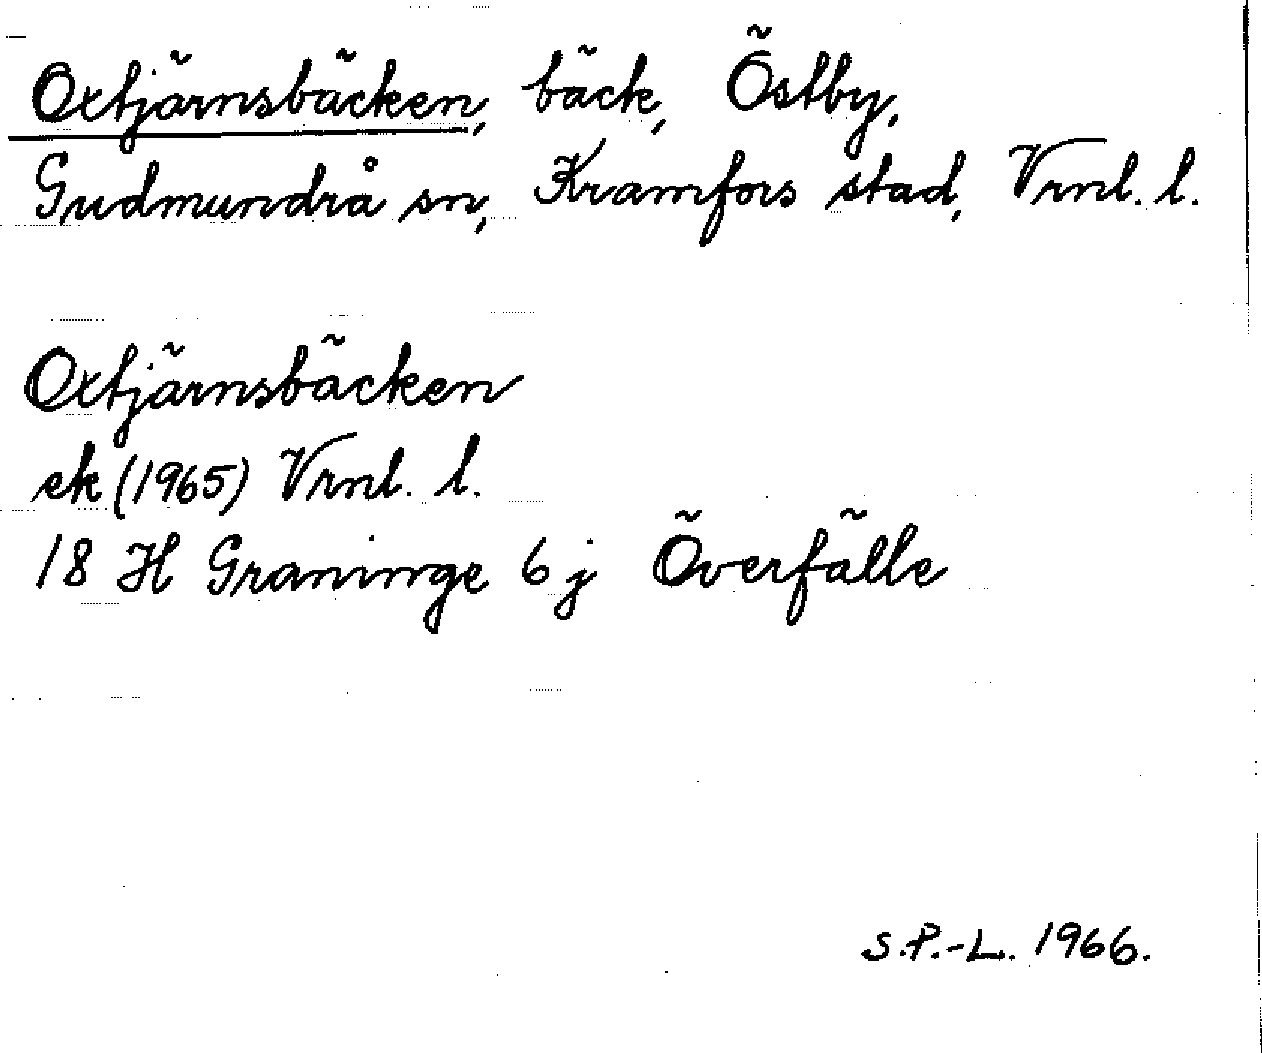 Oxtjärnsbäcken, bäck, Östby,
Gudmundrå sn, Kramfors stad, Vrnl. l.
Oxtjärnsbäcken
ek (1965) Vrnl. l.
18 H Graninge 6 j Överfälle
S.P.-L. 1966.